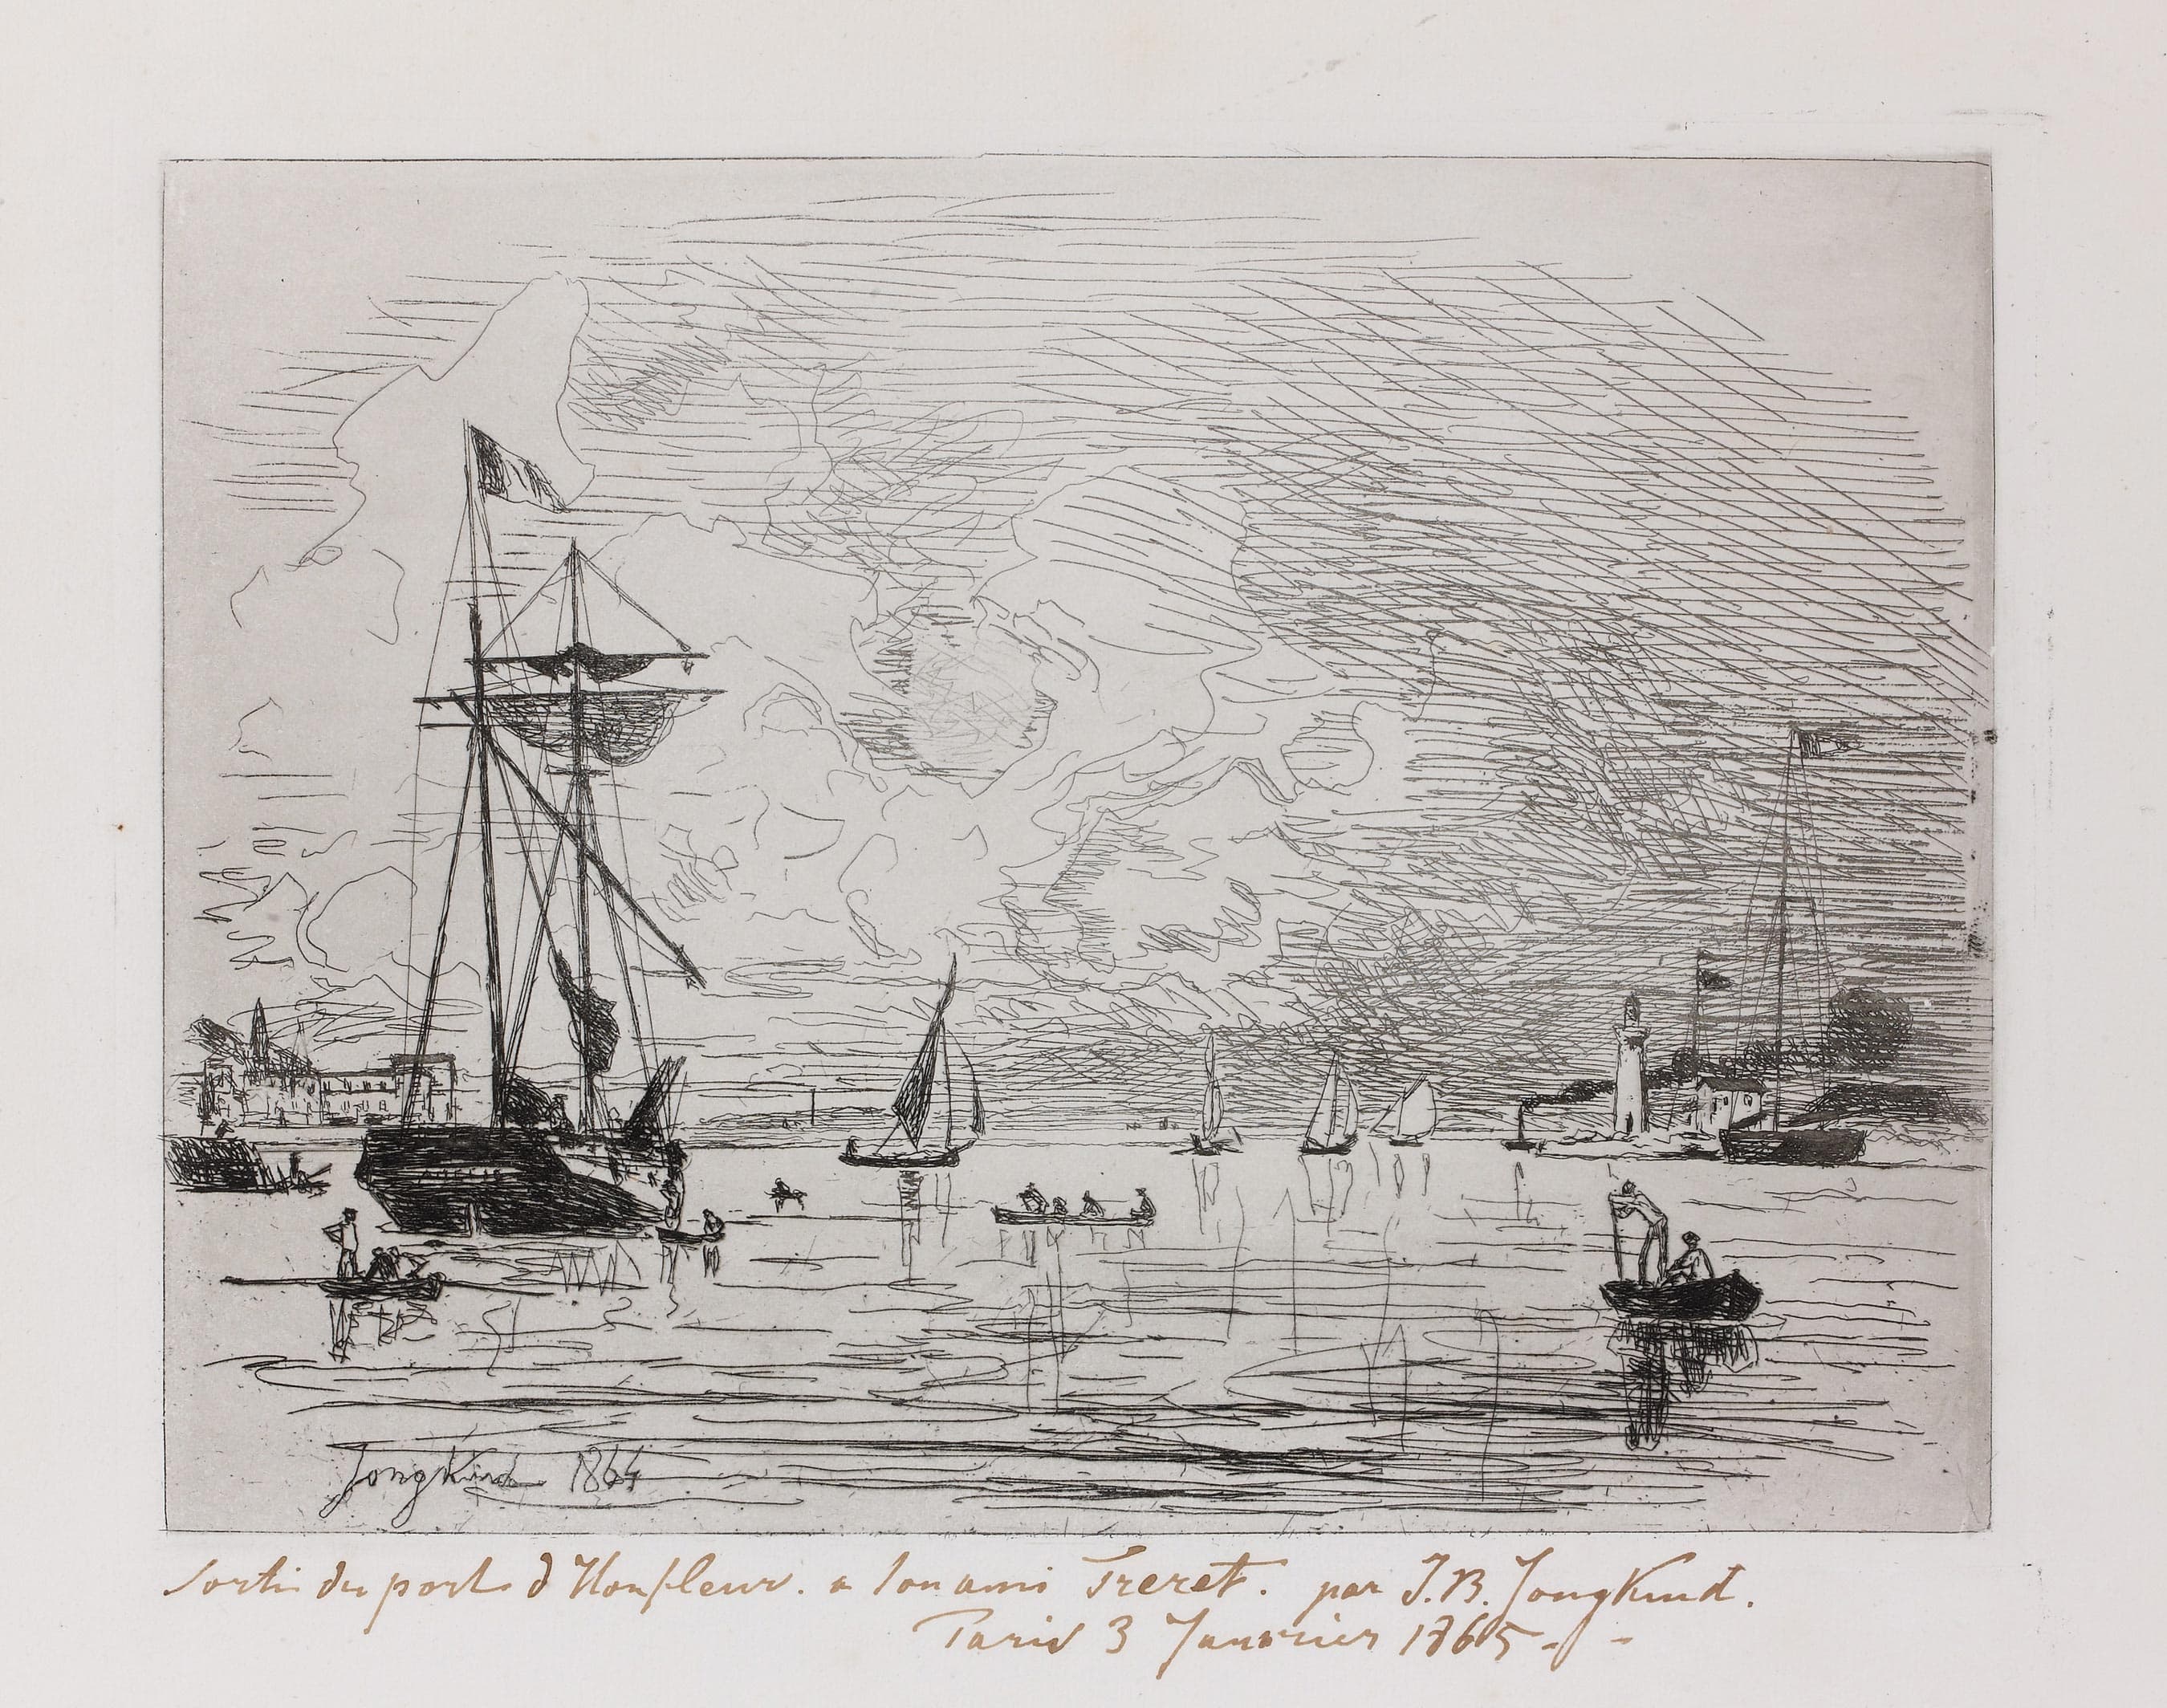 Jongkind 1864
Sortie du port d'Honfleur. a son ami Freret. par J.B. Jongkind.
Paris 3 Janvrier 1865 - -